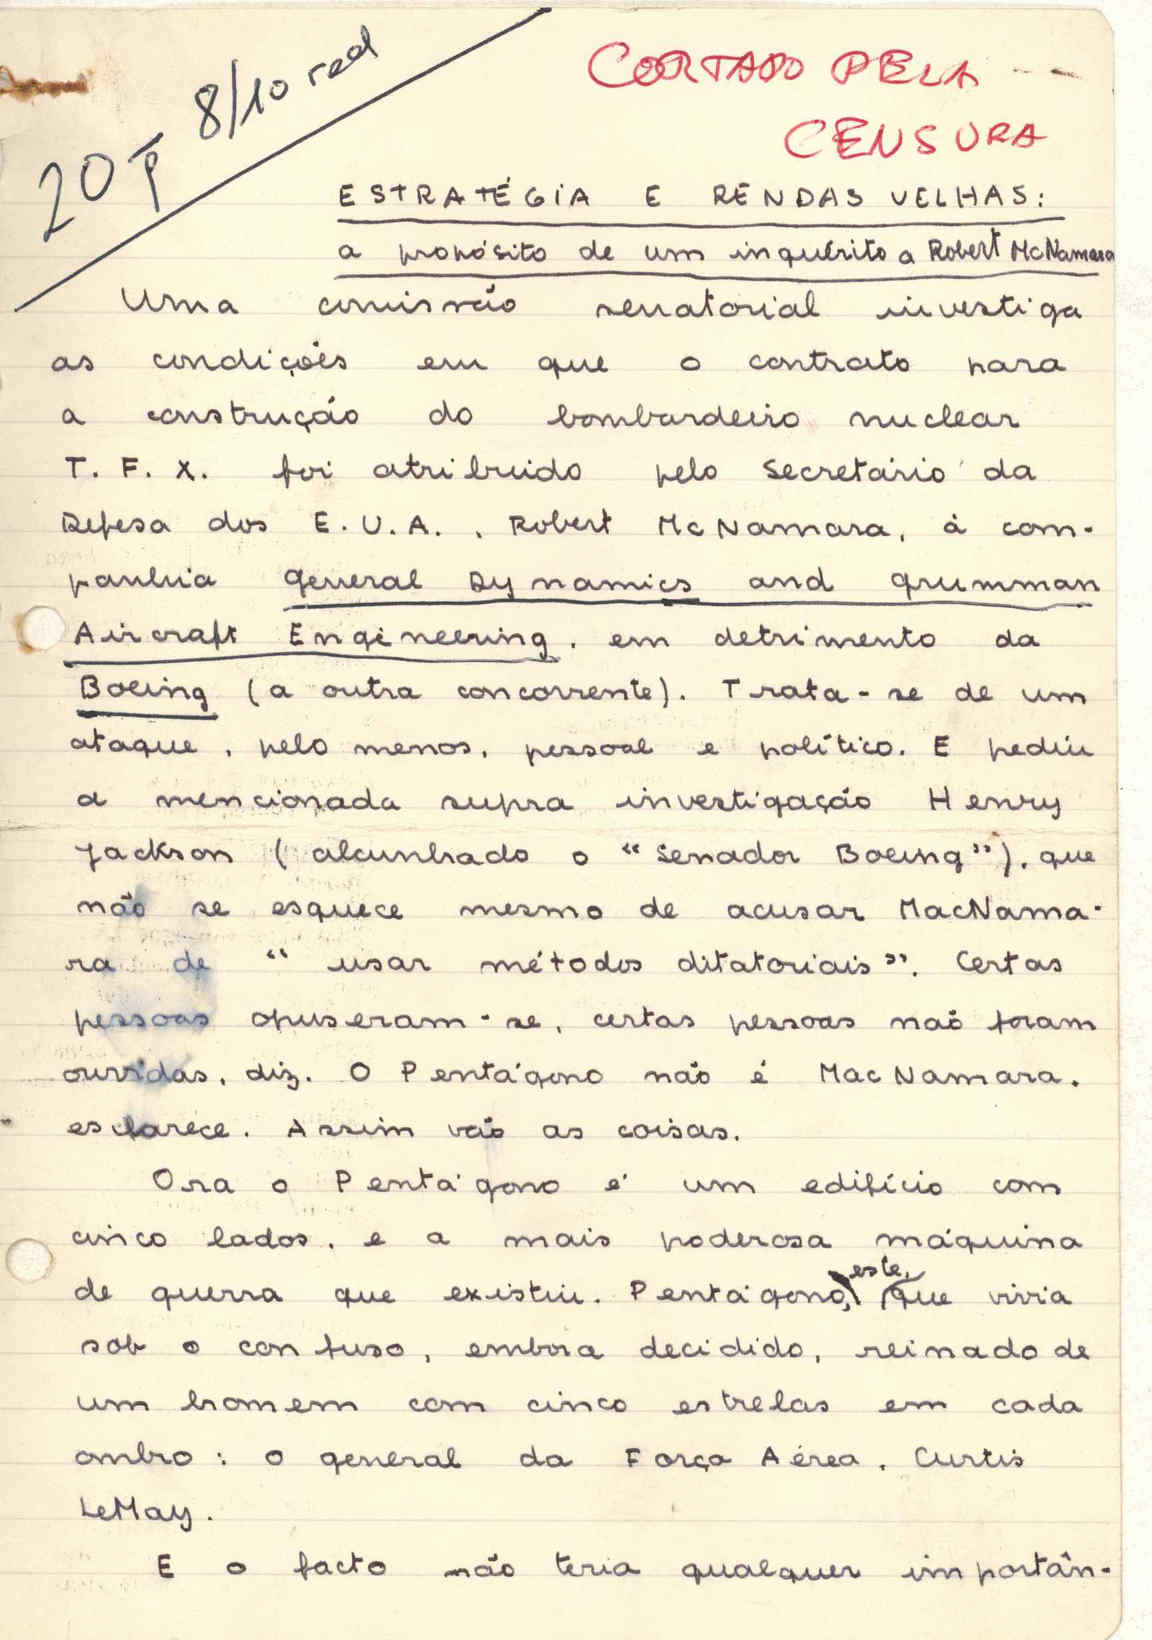 20 P 8/10 red
CORTADO PELA
CENSURA
ESTRATÉGIA E RENDAS VELHAS:
a propósito de um inquérito a Robert McNamara
Uma comissão senatorial investiga
as condições em que o contrato para
a construção do bombardeiro nuclear
T. F. X. foi atribuido pelo Secretário da
Defesa dos E.U.A., Robert McNamara, à com-
panhia General Dynamics and Grumman
Aircraft Engineering, em detrimento da
Boeing (a outra concorrente). Trata-se de um
ataque, pelo menos, pessoal e político. E pediu
a mencionada supra investigação Henry
Jackson (alcunhado o "Senador Boeing"), que
não se esquece mesmo de acusar MacNama-
ra de "usar métodos ditatoriais". Certas
pessoas opuseram-se, certas pessoas não foram
ouvidas, diz. O Pentágono não é MacNamara,
esclarece. Assim vão as coisas.
Ora o Pentágono é um edifício com
cinco lados, e a mais poderosa máquina
de guerra que existiu. Pentágono, este, que vivia
sob o confuso, embora decidido, reinado de
um homem com cinco estrelas em cada
ombro: o general da Força Aérea, Curtis
LeMay.
E o facto não teria qualquer importân-